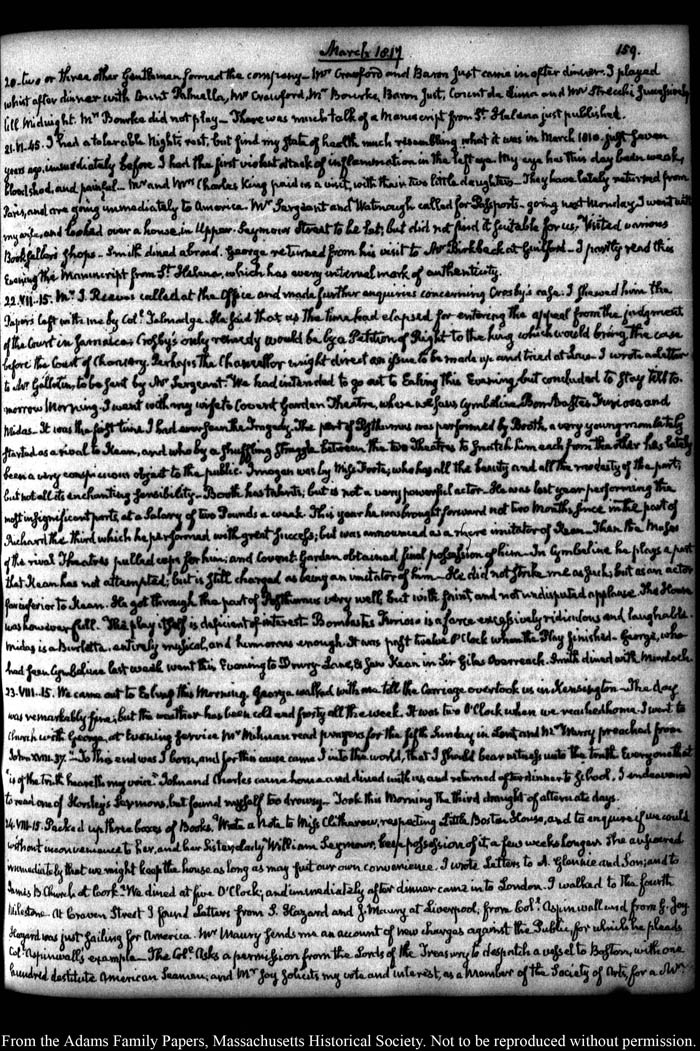 March 1817
159.
20. two or three other Gentlemen formed the company. Mr Crawford and Baron Just came in after dinner. I played
whist after dinner with Count Palmella, Mr Crawford, Mr Bourke, Baron Just, Count de Lima and Mr Strecchi, successively
till Midnight. Mr Bourke did not play. There was much talk of a Manuscript from St. Helena just published.
21. VI. 45. I had a tolerable Nights rest, but find my State of health much resembling what it was in March 1810. just seven
years ago, immediately before I had the first violent attack of inflammation in the left eye. My eye has this day been weak,
bloodshod, and painful. Mr and Mrs Charles King paid us a visit, with their two little daughters. They have lately returned from
Paris, and are going immediately to America. Mr Sargeant and Watmough called for Passports. going next Monday. I went with
my wife, and looked over a house in Upper Seymour Street to be let; but did not find it suitable for us. Visited various
Booksellers shops. Smith dined abroad. George returned from his visit to Mr Birkbeck at Guilford. I partly read this
Evening the Manuscript from St. Helena, which has every internal mark of authenticity.
22. VII. 15. Mr J. Reeves called at the Office and made further enquiries concerning Crosby's case. I shewed him the
Papers left with me by Coll. Talmadge. He said that as the time had elapsed for entering the appeal from the judgment
of the Court in Jamaica Crosby's only remedy would be by a Petition of Right to the king which would bring the case
before the Court of Chancery. Perhaps the Chancellor might direct an issue to be made up and tried at Law. I wrote a letter
to Mr Gallatin, to be sent by Mr Sergeant. We had intended to go out to Ealing this Evening, but concluded to stay till to-
morrow Morning. I went with my wife to Covent Garden Theatre, where we saw Cymbeline, Bombastes Furioso and
Midas. It was the first time I had ever seen the Tragedy. The part of Posthumus was performed by Booth, a very young man lately
started as a rival to Kean, and who by a shuffling struggle between the two Theatres to snatch him each from the other has lately
been a very conspicuous object to the public. Imogen was by Miss Foote, who has all the beauty and all the modesty of the part,
but not all its enchanting sensibility. Booth has talents; but is not a very powerful actor. He was last year performing the
most insignificant parts, at a Salary of two Pounds a week. This year he was brought forward not two Months since in the part of
Richard the third which he performed with great success; but was announced as a mere imitator of Kean. Then the
of the rival Theatres pulled caps for him; and Covent Garden obtained final possession of him. In Cymbeline he plays a part
that Kean has not attempted; but is still charged as being an imitator of him. He did not strike me as such; but as an actor
far inferior to Kean. He got through the part of Posthumus very well, but with faint and not undisputed applause. The House
was however full. The play itself is deficient of interest. Bombastes Furioso is a farce excessively ridiculous and laughable.
Midas is a Burletta, entirely musical, and humorous enough. It was past twelve O'Clock when the Play finished. George, who
had seen Cymbeline last week went this Evening to Drury Lane, & saw Kean in Sir Giles Overreach. Smith dined with Murdock.
23. VIII. 15. We came out to Ealing this Morning. George walked with me till the Carriage overtook us in Kensington. The day
was remarkably fine, but the weather has been cold and frosty all the week. It was two O'Clock when we reached home. I went to
Church with George, at Evening service Mr read prayers for the fifth Sunday in Lent and Mr preached from
John XVIII. 37. "To this end was I born, and for this cause came I into the world, that I should bear witness unto the truth. Every one that
"is of the truth heareth my voice." John and Charles came home and dined with us and returned after dinner to School. I endeavoured
to read one of Horsley's Sermons, but found myself too drowsy. Took this Morning the third draught of alternate days.
24. VIII. 15. Packed up three boxes of Books. Wrote a Note to Miss Clitherow, respecting Little Boston House, and to enquire if we could
without inconvenience to her, and her Sister, Lady William Seymour, keep possession of it a few weeks longer. She answered
immediately that we might keep the house as long as may suit our own convenience. I wrote Letters to A. Glennie and Son; and to
James B. Church at Cork. We dined at five O'Clock, and immediately after dinner came in to London. I walked to the fourth
Milestone. At Craven Street I found Letters from S. Hazard and J. Maury at Liverpool, from Coll. Aspinwall and from G. Joy.
Hazard was just sailing for America. Mr Maury sends me an account of new charges against the Public, for which he pleads
Coll. Aspinwall's example. The Coll. asks a permission from the Lords of the Treasury to despatch a vessel to Boston, with one
hundred destitute American Seamen; and Mr Joy solicits my vote and interest, as a Member of the Society of Arts, for a Mr
From the Adams Family Papers, Massachusetts Historical Society. Not to be reproduced without permission.